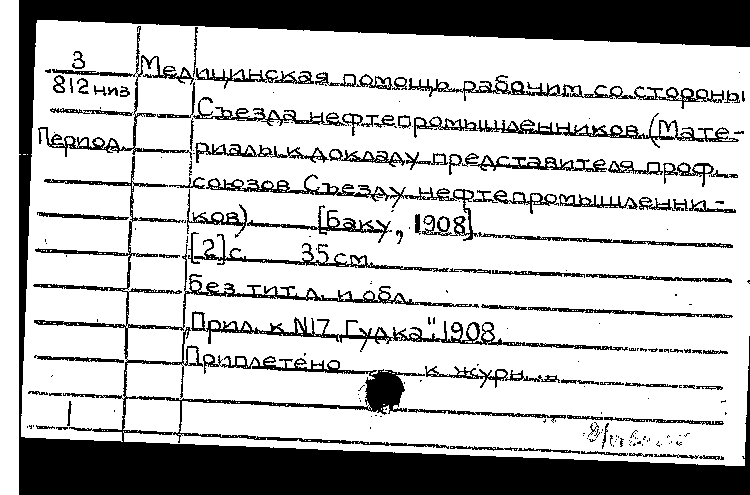 3
812 низ
Период.
Медицинская помощь рабочим со стороны
Съезда нефтепромышленников. (Мате-
риалы к докладу представителя проф.
союзов Съезду нефтепромышленни-
ков). [Баку, 1908].
[2] с. 35 см.
Без тит. л. и обл.
"Прил. к N17 „Гудка". 1908.
Приплетено к журн...